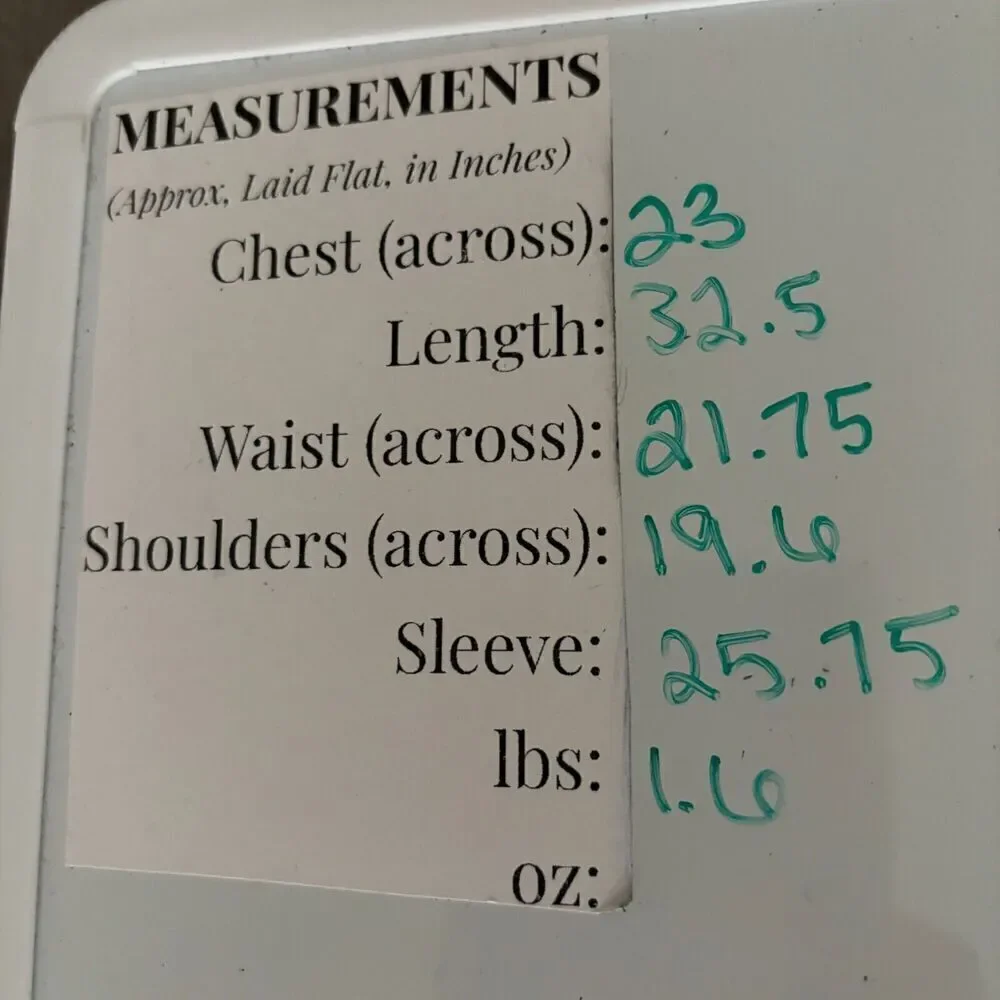 MEASUREMENTS
(Approx, Laid Flat, in Inches)
Chest (across): 23
Length: 32.5
Waist (across): 21.75
Shoulders (across): 19.6
Sleeve: 25.75
lbs: 1.6
oz: